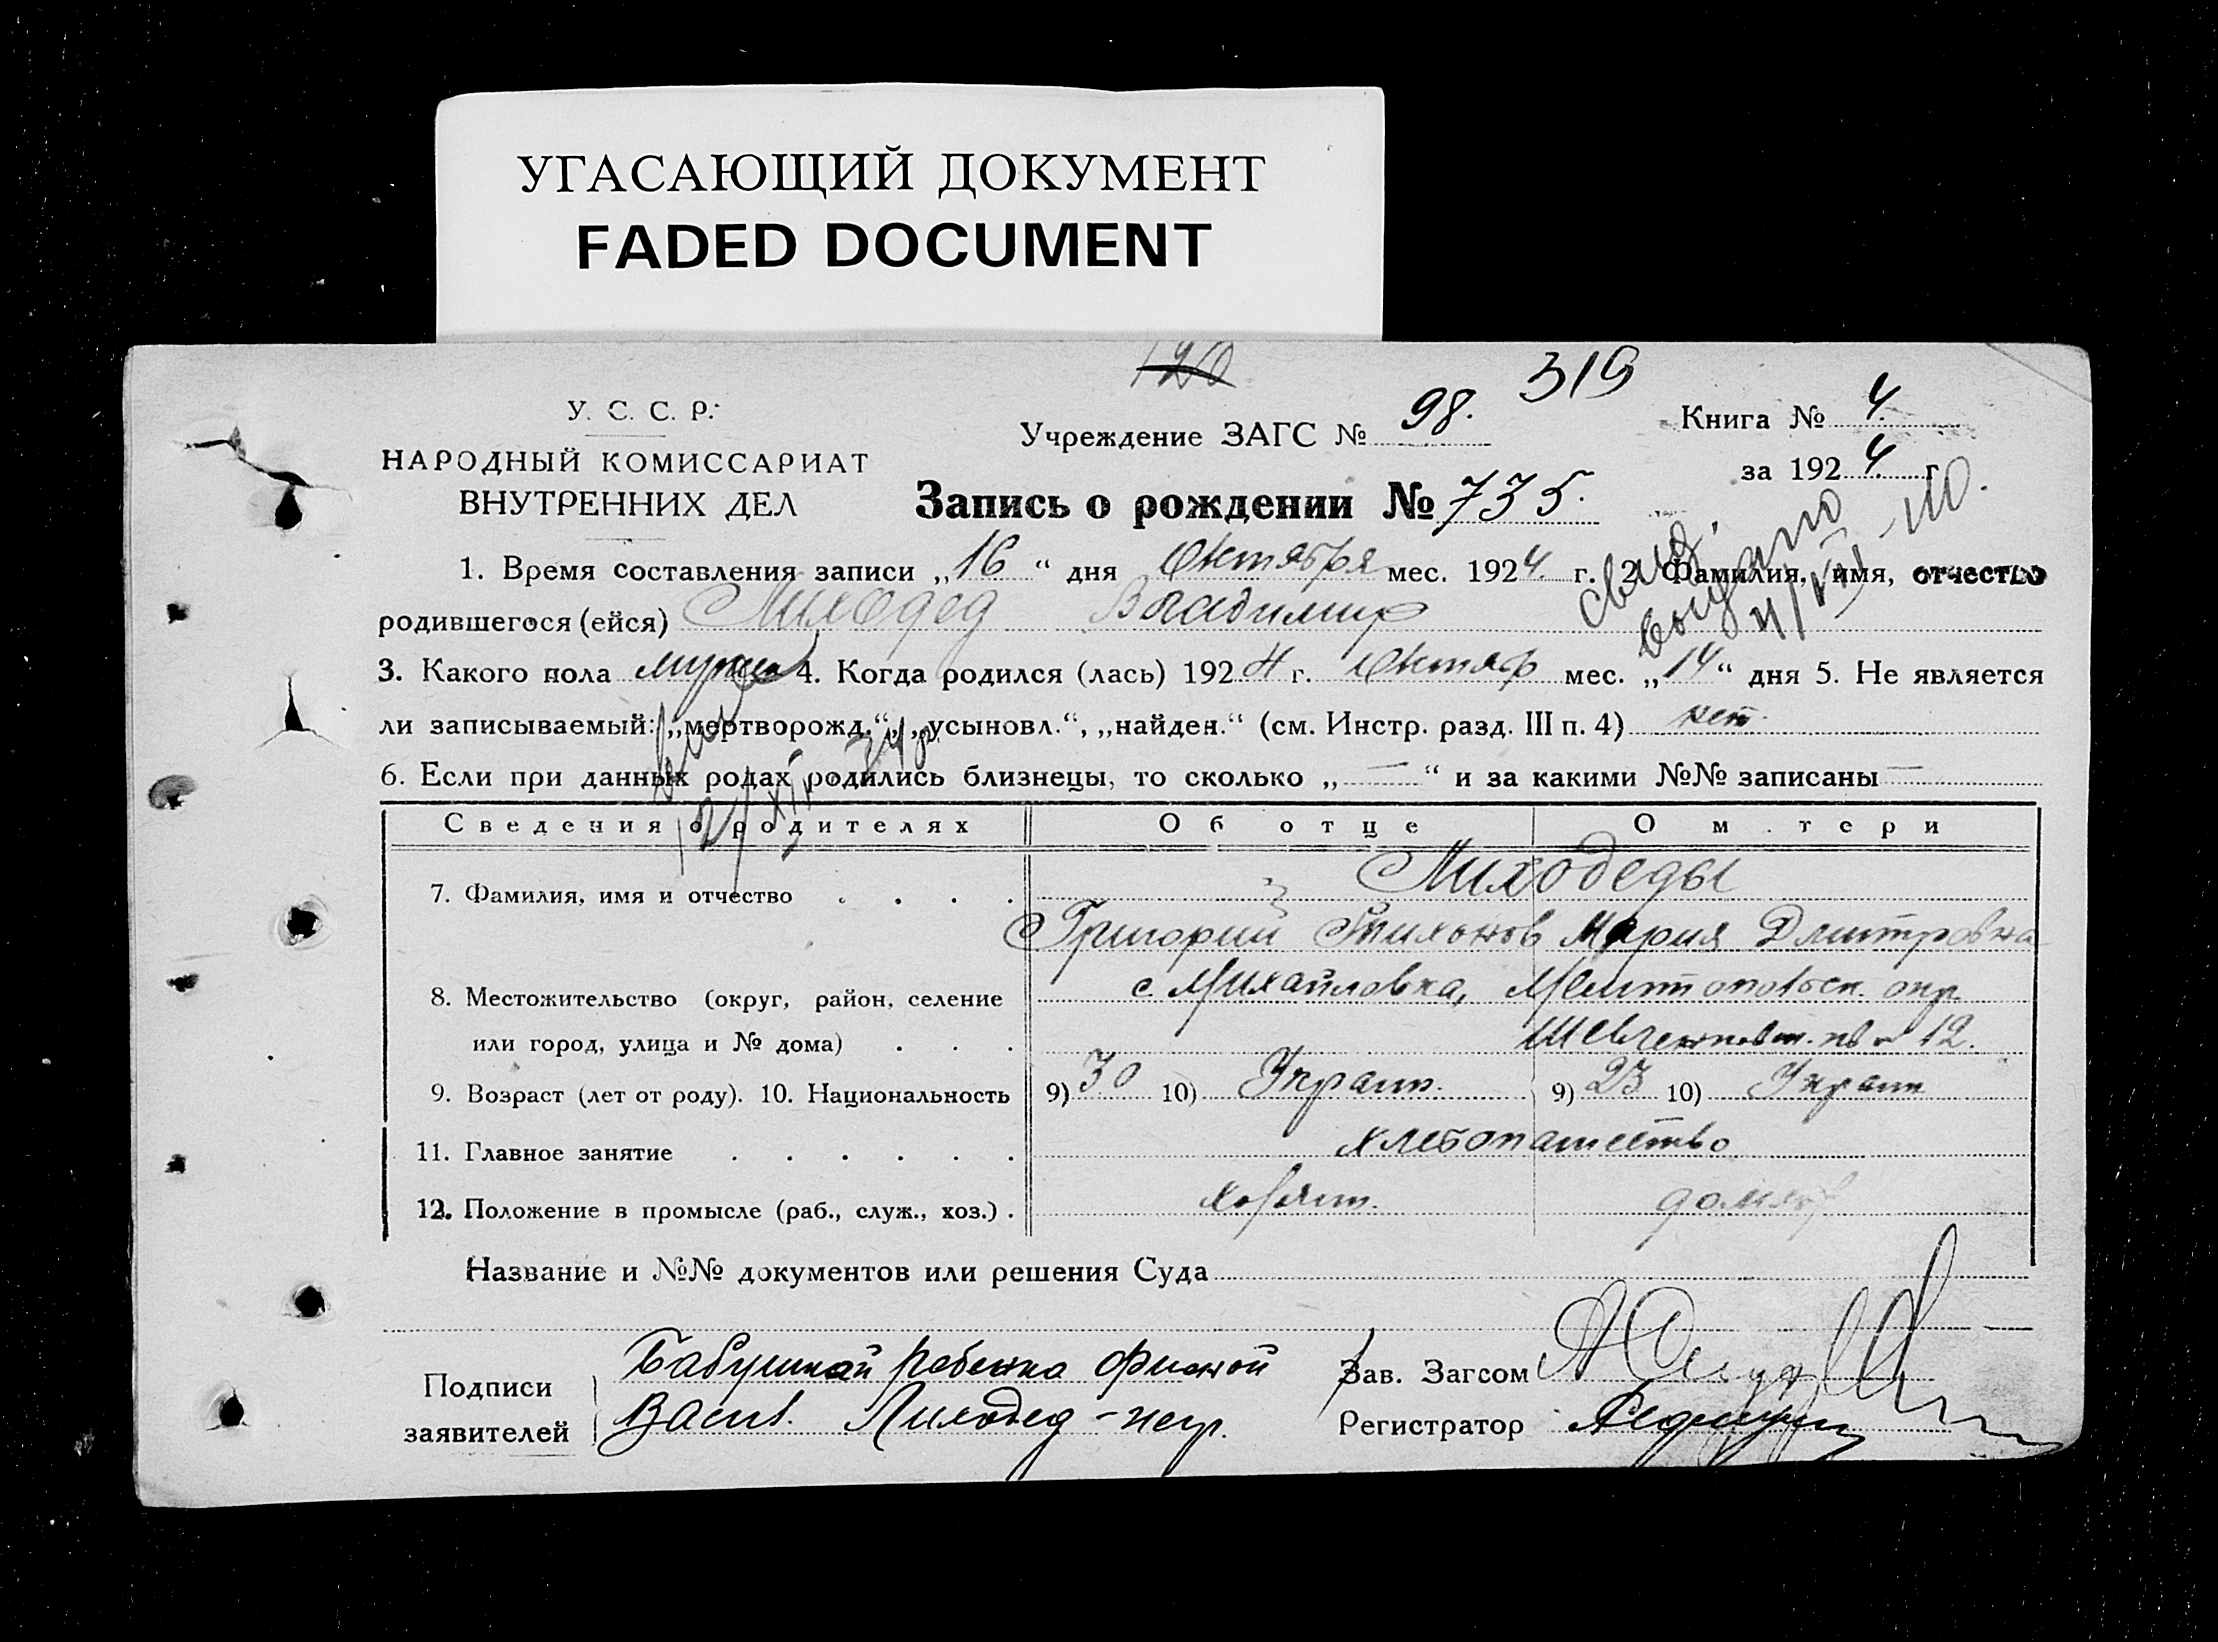 УГАСАЮЩИЙ ДОКУМЕНТ
FADED DOCUMENT
120
319
У. С. С. Р.
НАРОДНЫЙ КОМИССАРИАТ
ВНУТРЕННИХ ДЕЛ
Учреждение ЗАГС № 98.
Книга № 4.
за 1924 г.
Запись о рождении № 735.
свид.
выдано
1. Время составления записи „16“ дня Октября мес. 1924. г. 2. Фамилия, имя, отчество
родившегося (ейся) Лиходед Владимир
3. Какого пола мужск 4. Когда родился (лась) 1924 г. Октяб мес. „14“ дня 5. Не является
ли записываемый: „мертворожд.“, „усыновл.“, „найден.“ (см. Инстр. разд. III п. 4) нет.
6. Если при данных родах родились близнецы, то сколько „—“ и за какими №№ записаны —
Сведения о родителях Об отце О м тери
7. Фамилия, имя и отчество . . . . Лиходеды
Григорий Тихонов Мария Дмитровна
8. Местожительство (округ, район, селение с. Михайловка, Мелитопольск. окр.
или город, улица и № дома) . . . Шевченковск. 12.
9. Возраст (лет от роду). 10. Национальность 9) 30 10) Украин. 9) 23 10) Украин
11. Главное занятие . . . . . . хлебопашество
12. Положение в промысле (раб., служ., хоз.) . хозяин. домхоз
Название и №№ документов или решения Суда
Подписи
заявителей
Бабушкой ребенка
Васил. Лиходед - негр.
Зав. Загсом
Регистратор